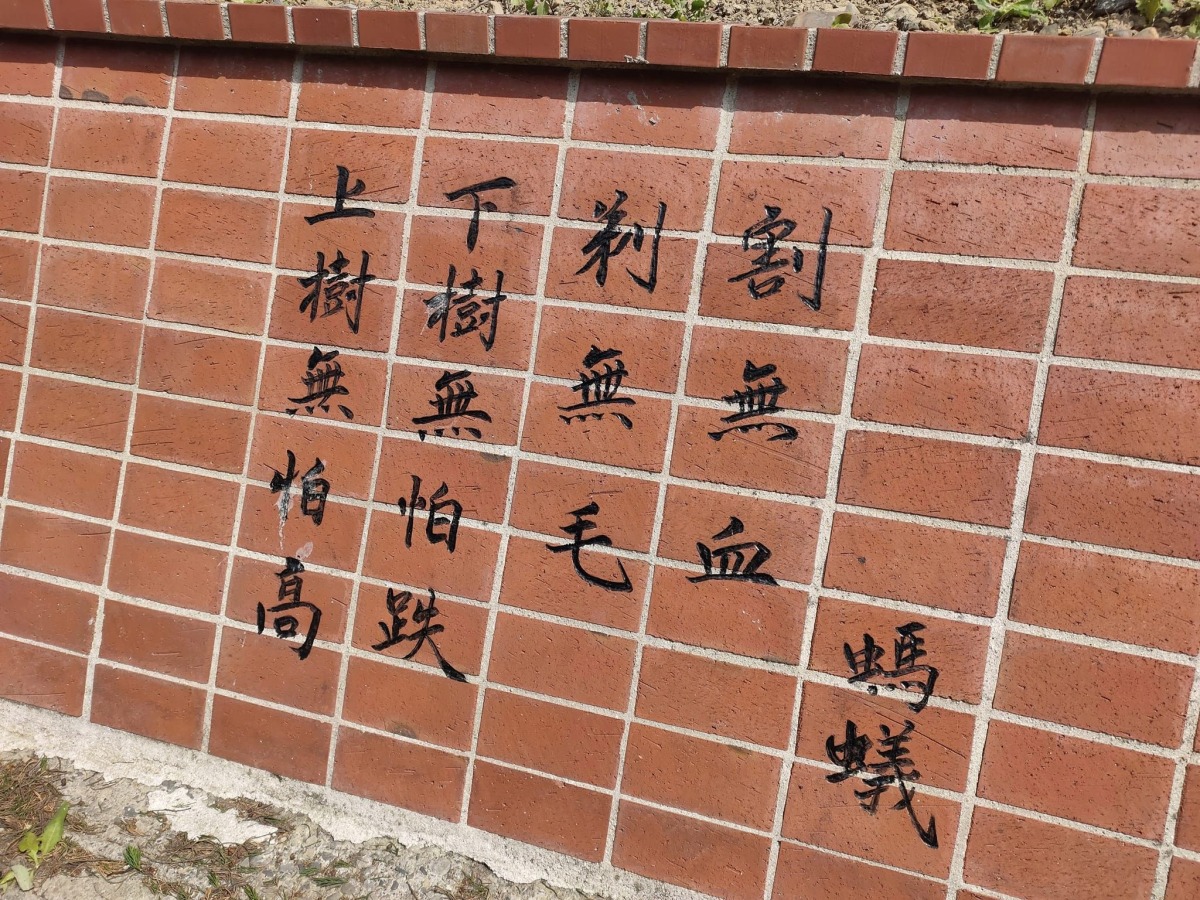 上樹無怕高
下樹無怕跌
剝無毛
割無血
螞蟻